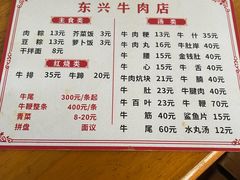 东兴牛肉店
主食类
肉粽 13元 芥菜饭 3元
豆粽 13元 萝卜饭 3元
干拌面 8元
红烧类
牛排 35元 牛蹄 20元
牛尾 300元/条起
牛鞭整条 400元/条
青菜 8-20元
拼盘 面议
汤类
牛肉粳 13元 牛什 35元
牛肉丸 16元 牛肚岸 40元
腰 15元 金钱肚 40元
牛心 15元 牛舌 40元
牛肉炕块 21元 牛腩 40元
牛肚 23元 牛腱肉 40元
牛百叶 23元 牛鞭 70元
牛筋 40元 鲨鱼片 15元
牛尾 60元 水丸汤 12元